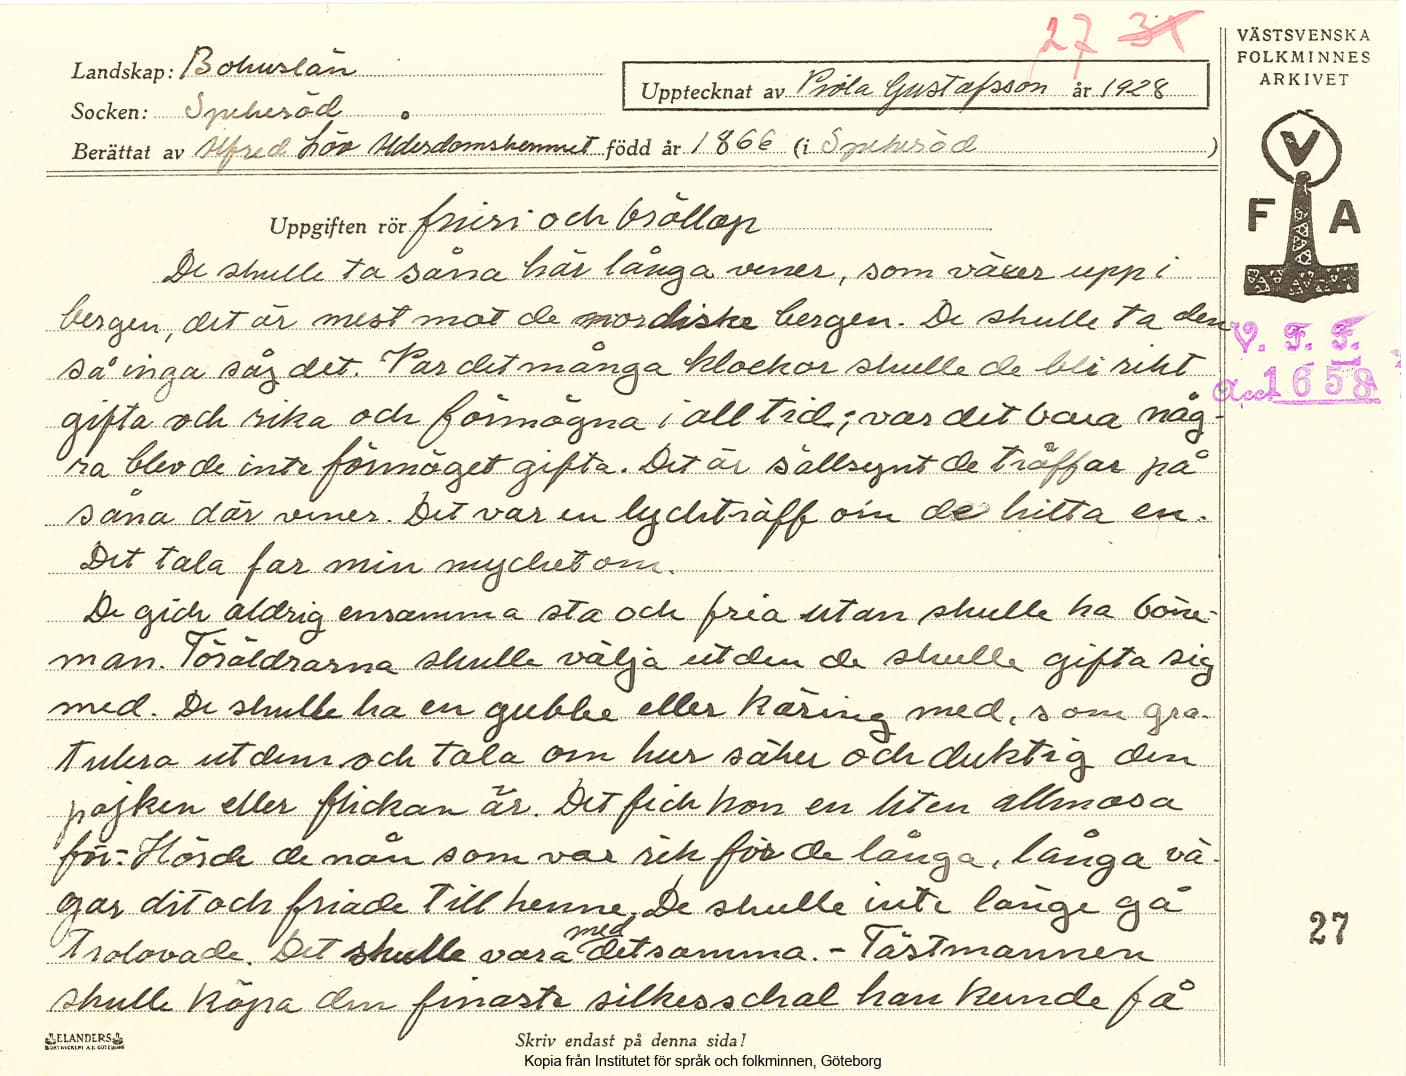 27 31
VÄSTSVENSKA
FOLKMINNES
ARKIVET
Landskap: Bohuslän
Upptecknat av Viola Gustafsson år 1928
Socken: Spekeröd
Berättat av Alfred Löv Ålderdomshemmet född år 1866 (i Spekeröd )
V
F A
Uppgiften rör frieri och bröllop
De skulle ta såna här långa vener, som växer upp i
bergen, det är mest mot de nordiske bergen. De skulle ta den
så inga såg det. Var det många klockor skulle de bli rikt
gifta och rika och förmögna i all tid; var det bara någ-
ra blev de inte förmöget gifta. Det är sällsynt de träffar på
såna där vener. Det var en lyckträff om de hitta en.
Det tala far min mycket om.
De gick aldrig ensamma sta och fria utan skulle ha böne-
man. Föräldrarna skulle välja ut den de skulle gifta sig
med. De skulle ha en gubbe eller käring med, som gra-
tulera ut dem och tala om hur säker och duktig den
pojken eller flickan är. Det fick hon en liten allmosa
för. Hörde de nån som var rik för de långa, långa vä-
gar dit och friade till henne. De skulle inte länge gå
trolovade. Det skulle vara med detsamma. - Fästmannen
skulle köpa den finaste silkesschal han kunde få
V. F. F.
Acc. 1658
27
ELANDERS
BOKTRYCKERI A.B. GÖTEBORG
Skriv endast på denna sida!
Kopia från Institutet för språk och folkminnen, Göteborg